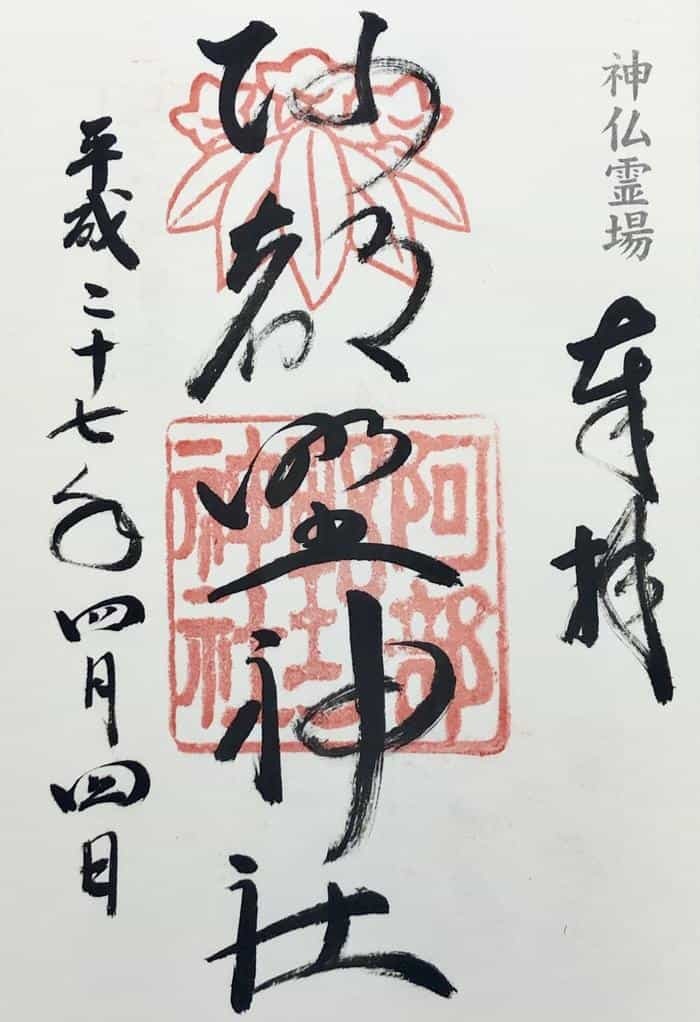 神仏霊場
奉拝
阿部野神社
阿部
神社
平成二十七年四月四日